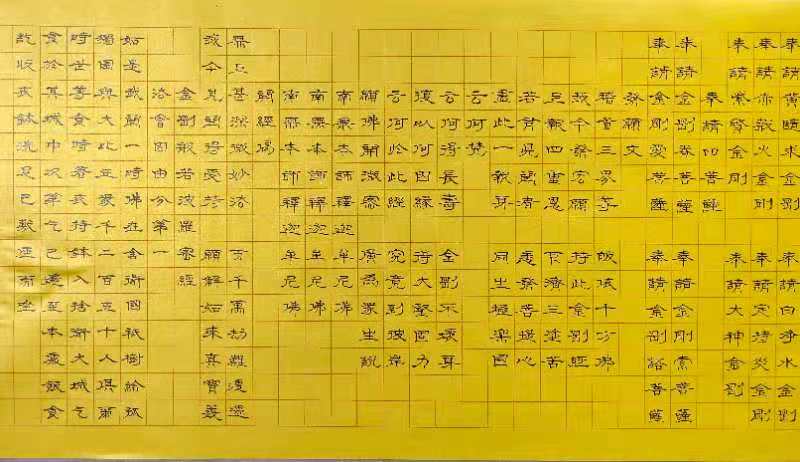 奉請黃隨求金剛 奉請白淨水金剛
奉請赤聲火金剛 奉請定持災金剛
奉請紫賢金剛 奉請大神金剛
奉請四菩薩
奉請金剛眷菩薩 奉請金剛索菩薩
奉請金剛愛菩薩 奉請金剛語菩薩
發願文
稽首三界尊 皈依十方佛
我今發宏願 持此金剛經
上報四重恩 下濟三塗苦
若有見聞者 悉發菩提心
盡此一報身 同生極樂國
云何梵
云何得長壽 金剛不壞身
復以何因緣 得大堅固力
云何於此經 究竟到彼岸
願佛開微密 廣為眾生說
南無本師釋迦牟尼佛
南無本師釋迦牟尼佛
南無本師釋迦牟尼佛
開經偈
無上甚深微妙法 百千萬劫難遭遇
我今見聞得受持 願解如來真實義
金剛般若波羅蜜經
法會因由分第一
如是我聞一時佛在舍衛國祇樹給孤
獨園與大比丘眾千二百五十人俱爾
時世尊食時著衣持缽入舍衛大城乞
食於其城中次第乞已還至本處飯食
訖收衣缽洗足已敷座而坐